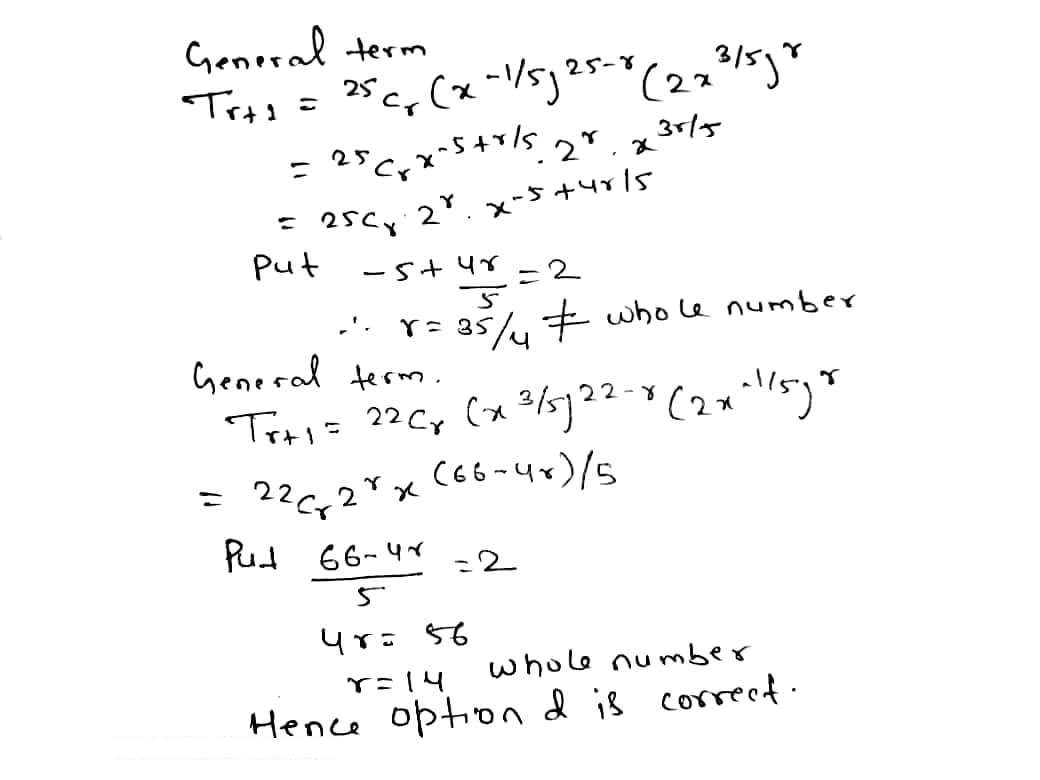 General term
Tr+1 = 25Cr (x -1/5)25-r (2x 3/5)r
= 25Cr x-5+r/5 . 2r . x 3r/5
= 25Cr 2r . x-5+4r/5
Put -5+ 4r/5 = 2
∴ r = 35/4 ≠ whole number
General term.
Tr+1 = 22Cr (x 3/5)22-r (2x-1/5)r
= 22Cr 2r x (66-4r)/5
Put 66-4r/5 = 2
4r = 56
r=14 whole number
Hence option d is correct.